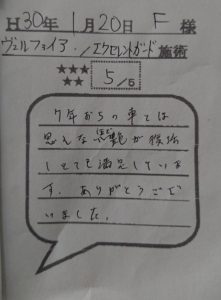 H30年1月20日 F 様
ヴェルファイア／エクセレントガード施術
★★★
★★
5/5
7年おちの車とは
思えな黒艶が復活
しとても満足していま
す。ありがとうござ
いました。